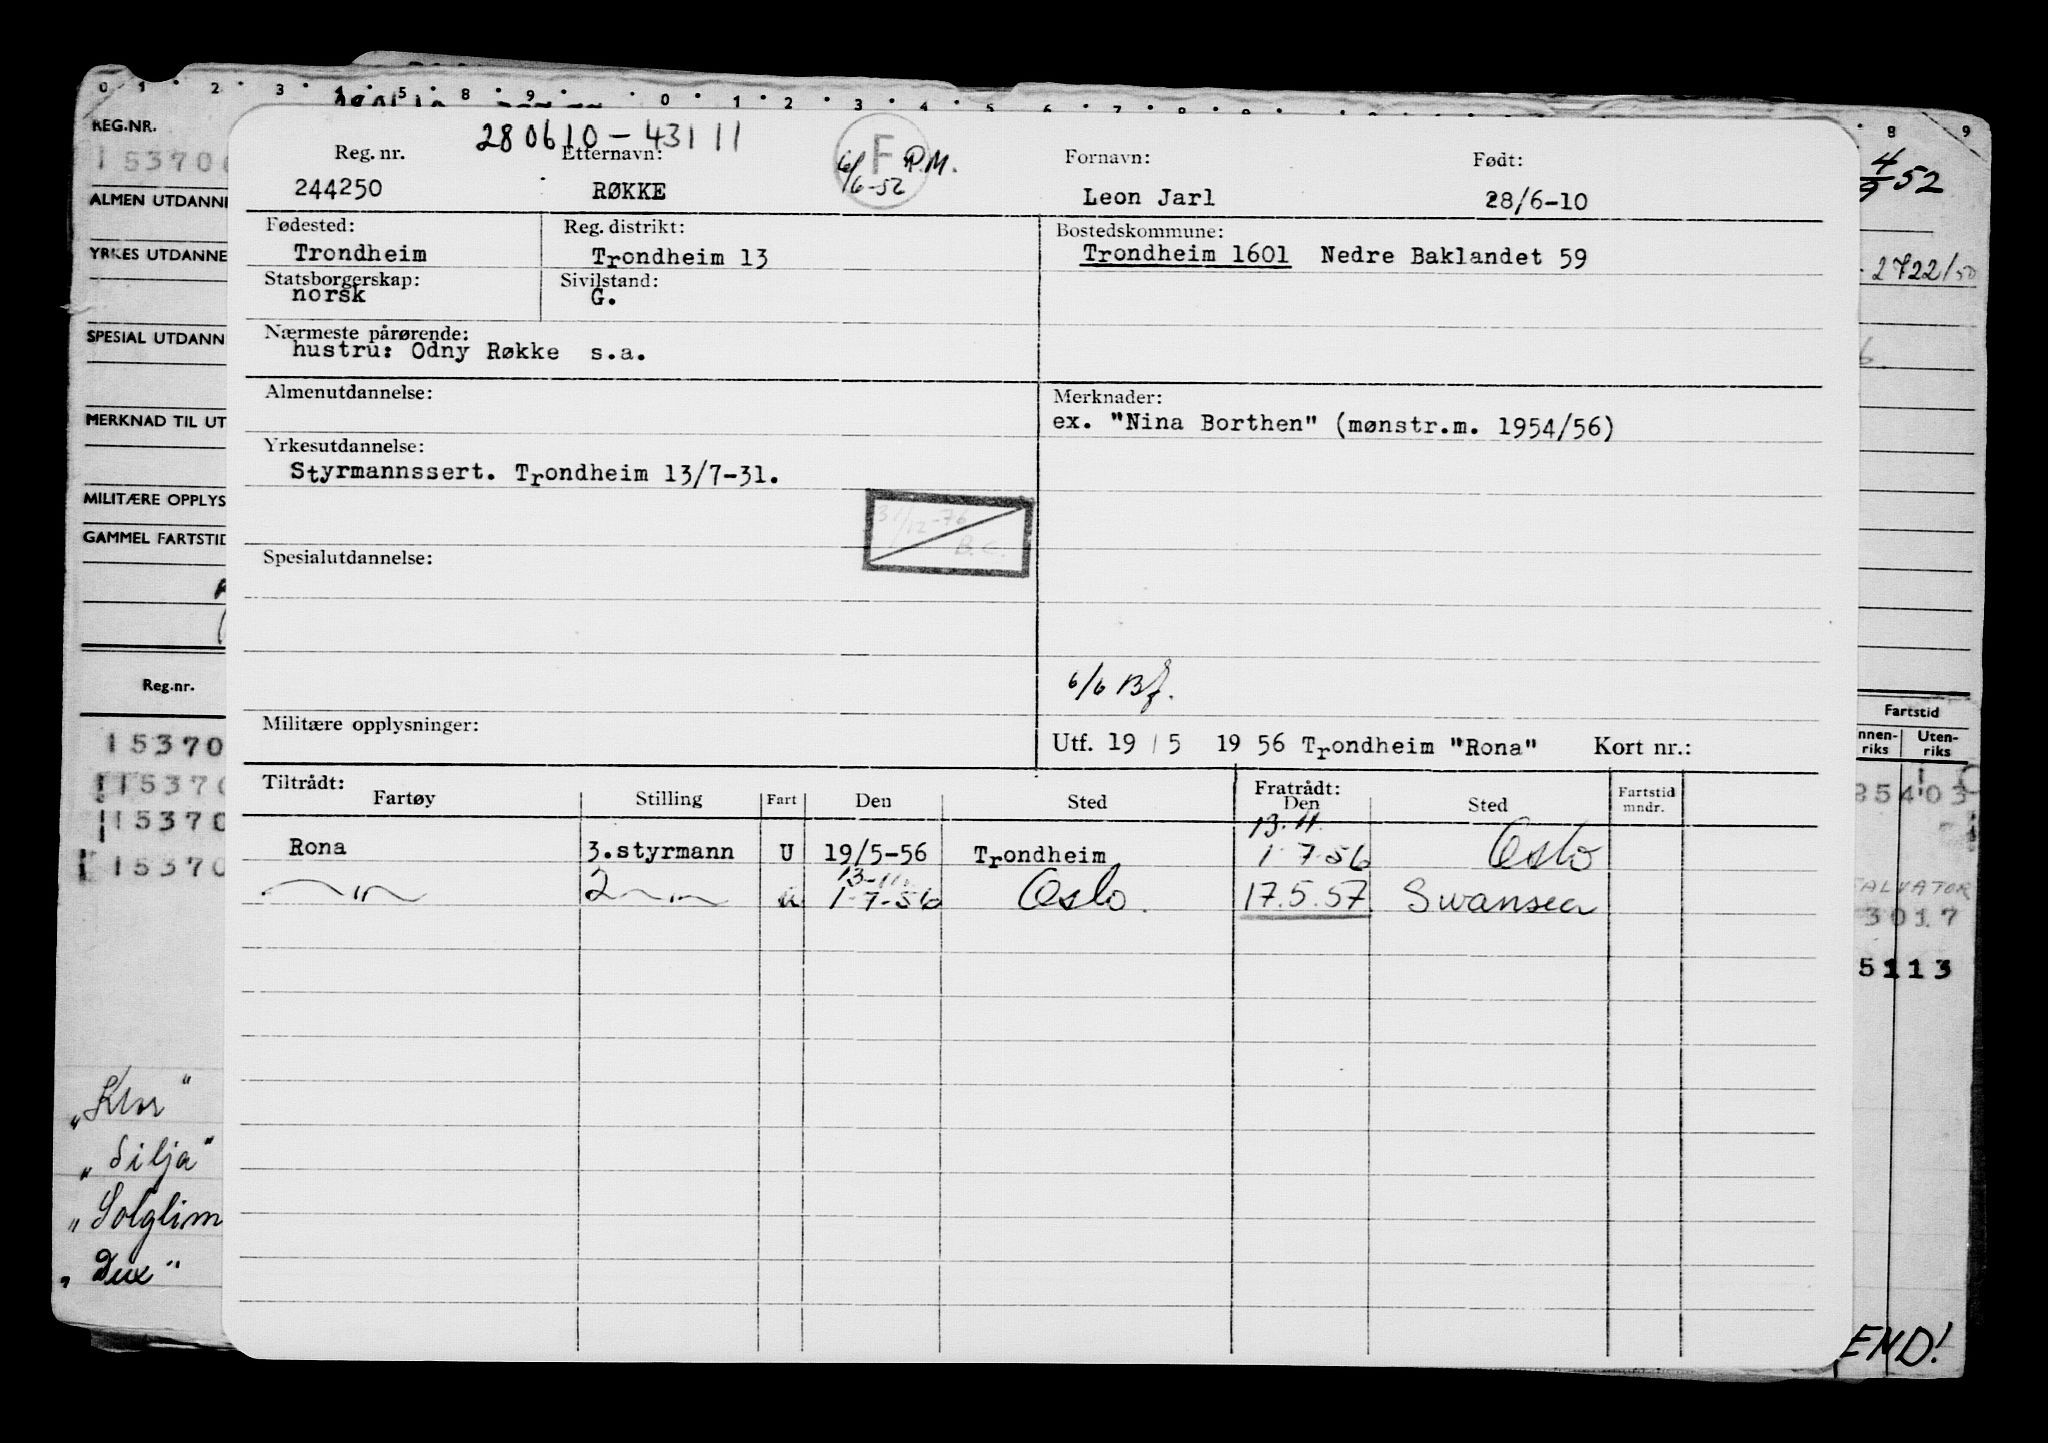 0 1 2 3 4 5 8 9 0 1 2 3 4 5 6 7 8 9 8 9
REG.NR.
15370
ALMEN UTDANNE
YRKES UTDANNE
SPESIAL UTDANN
MERKNAD TIL UT
MILITÆRE OPPLYS
GAMMEL FARTSTID
Reg.nr.
15370
15370
15370
15370
"Klor"
"Silja"
"Solglim
"Dux"
280610-43111
Reg. nr. Etternavn: F Fornavn: Født:
6/6-52 P.M.
244250 RØKKE Leon Jarl 28/6-10
Fødested: Reg. distrikt: Bostedskommune:
Trondheim Trondheim 13 Trondheim 1601 Nedre Baklandet 59
Statsborgerskap: Sivilstand:
norsk G.
Nærmeste pårørende:
hustru: Odny Røkke s.a.
Almenutdannelse: Merknader:
ex. "Nina Borthen" (mønstr.m. 1954/56)
Yrkesutdannelse:
Styrmannssert. Trondheim 13/7-31.
31/12-76
B.C.
Spesialutdannelse:
6/6 Bf.
Militære opplysninger:
Utf. 19/5 1956 Trondheim "Rona" Kort nr.:
Tiltrådt: Fratrådt:
Fartøy Stilling Fart Den Sted Den Sted Fartstid mndr.
13.11.
Rona 3.styrmann U 19/5-56 Trondheim 1-7-56 Oslo
13-11
—"— 2—"— u 1-7-56 Oslo. 17.5.57 Swansea
4/9 52
2722/50
6.
Fartstid
nnen-riks Uten-riks
85403
SALVATOR
3017
5113
END!